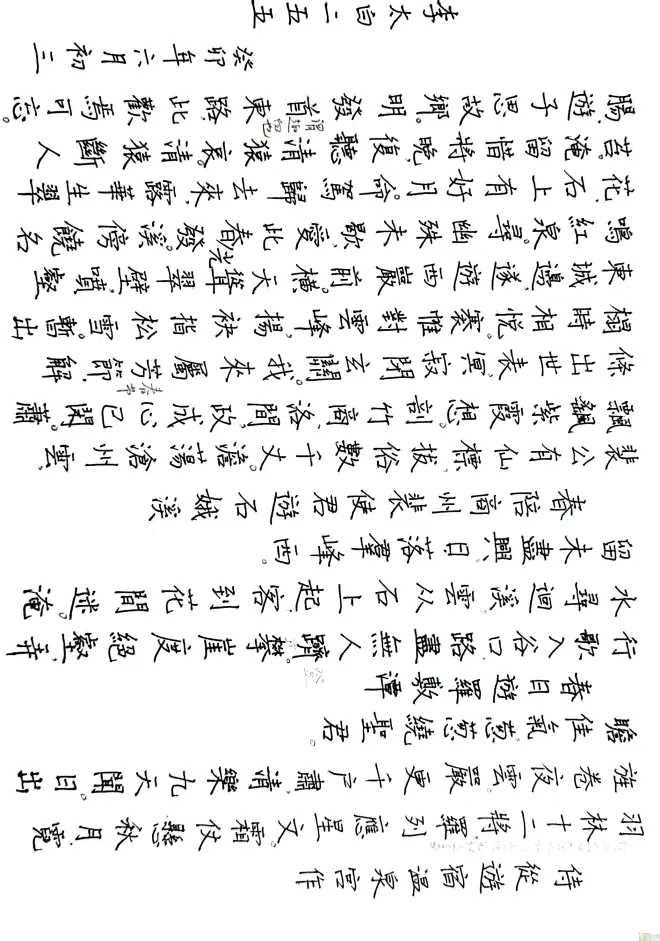 侍從遊宿溫泉宮作
羽林十二將,羅列應星文。霜仗懸秋月,霓
旌卷夜雲。嚴更千戶肅,清樂九天聞。日出
瞻佳氣,葱葱繞聖君。
春日遊羅敷潭
行歌入谷口,路盡無人躋。攀崖度絕壑,弄
水尋迴溪。雲从石上起,客到花間迷。淹
留未盡興,日落羣峰西。
春陪商州裴使君遊石娥溪
裴公有仙標,拔俗數千丈。澹蕩滄州雲,
飄飖紫霞想。剖竹商洛間,政成心已閑。蕭
條出世表,冥寂閉玄關。我來屬芳節,解
春节
榻時相悅。褰帷對雲峰,揚袂指松雪。暫出
東城邊,遂遊西巖前。橫天聳翠壁,噴壑
鳴紅泉。尋幽殊未歇,愛此春光發。溪傍饒名
花,石上有好月。命駕歸去來,露華生翠
苔。淹留惜將晚,復聽清猿哀。清猿斷人
腸,遊子思故鄉。明發首東路,此歡焉可忘。
癸卯年六月初三
李太白二五五